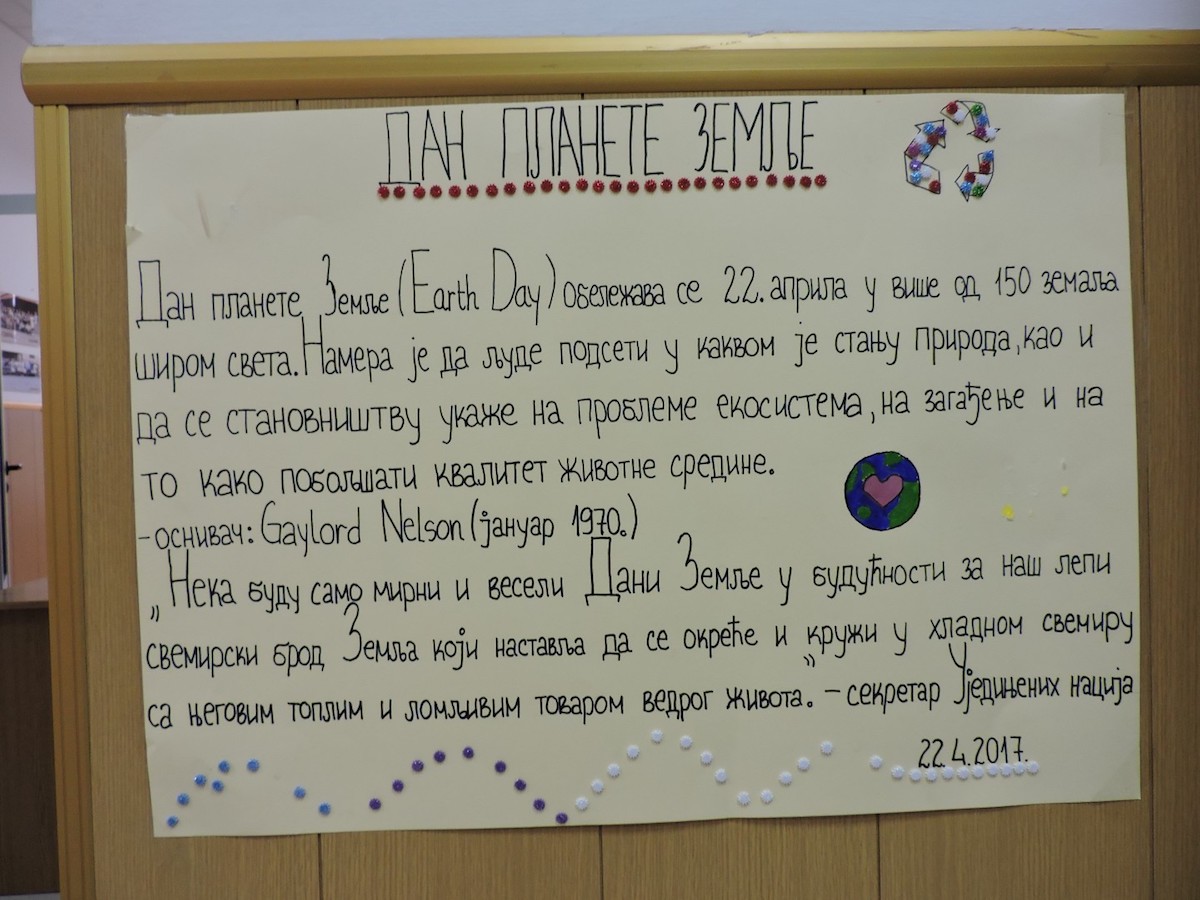 ДАН ПЛАНЕТЕ ЗЕМЉЕ
Дан планете Земље (Earth Day) обележава се 22. априла у више од 150 земаља
широм света. Намера је да људе подсети у каквом је стању природа, као и
да се становништву укаже на проблеме екосистема, на загађење и на
то како побољшати квалитет животне средине.
-оснивач: Gaylord Nelson (јануар 1970.)
„Нека буду само мирни и весели Дани Земље у будућности за наш лепи
свемирски брод Земља који наставља да се окреће и кружи у хладном свемиру
са његовим топлим и ломљивим товаром ведрог живота.” - секретар Уједињених нација
22.4.2017.